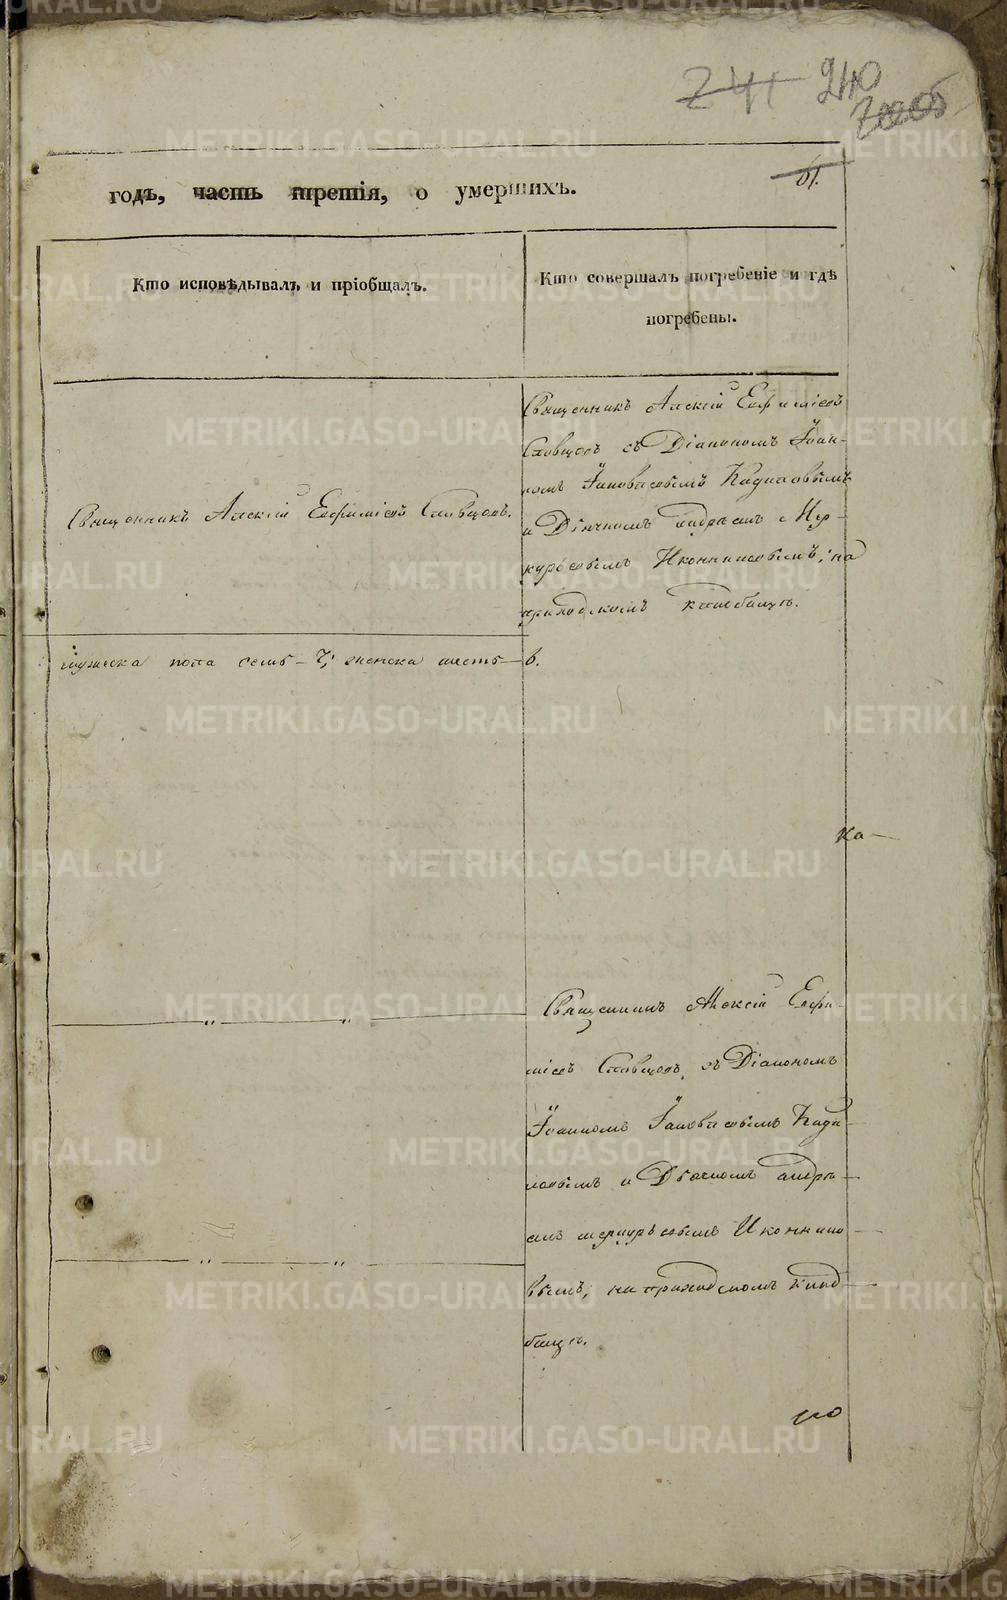 241 240
61.
годъ, часть третія, о умершихъ.
Кто исповѣдывалъ и пріобщалъ.
Кто совершалъ погребеніе и гдѣ
погребены.
Священникъ Алексій Евфиміевъ Словцовъ.
Священникъ Алексій Евфиміевъ
Словцовъ съ Діакономъ Іоан-
номъ Іаковлевымъ
и Дьячкомъ Андреемъ Мер-
курьевымъ Иконниковымъ; на
приходскомъ кладбищѣ.
мужеска пола семь – 7; женска шесть – 6.
Ка
Священникъ Алексій Евфи-
міевъ Словцовъ, съ Діакономъ
Іоанномъ Іаковлевымъ
и Дьячкомъ Андре-
емъ Меркурьевымъ Иконнико-
вымъ; на приходскомъ клад-
бищѣ.
METRIKI.GASO-URAL.RU